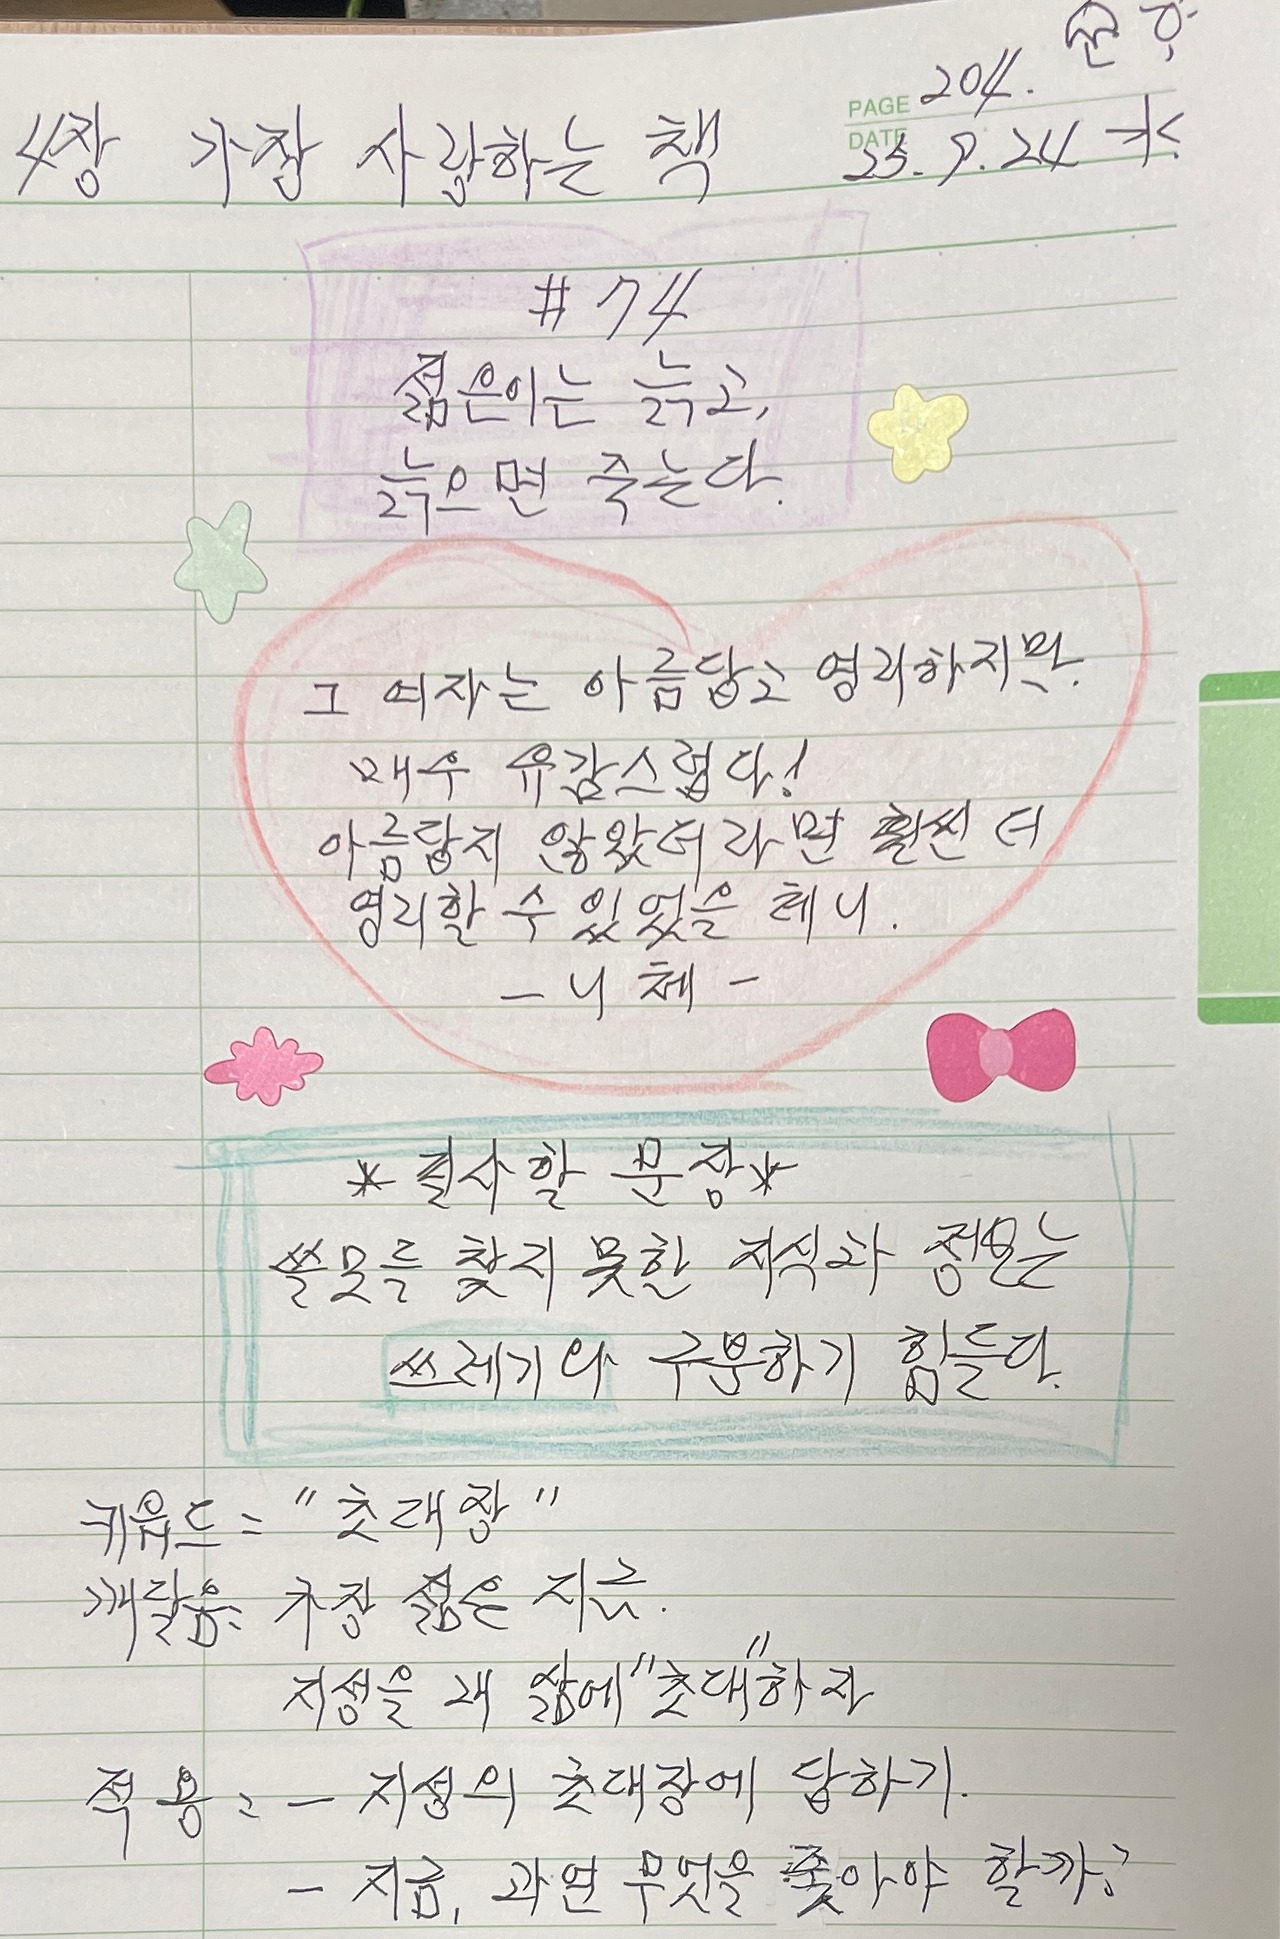 순항
PAGE 204.
DATE 25. 9. 24 水
4장 가장 사랑하는 책
# 74
젊은이는 늙고,
늙으면 죽는다.
그 여자는 아름답고 영리하지만.
매우 유감스럽다!
아름답지 않았더라면 훨씬 더
영리할 수 있었을 테니.
- 니체 -
* 필사할 문장 *
쓸모를 찾지 못한 지식과 정보는
쓰레기와 구분하기 힘들다.
키워드 = "초대장"
깨달음: 가장 젊은 지금.
지성을 내 삶에 "초대"하자
적용 = - 지성의 초대장에 답하기.
- 지금, 과연 무엇을 좇아야 할까?